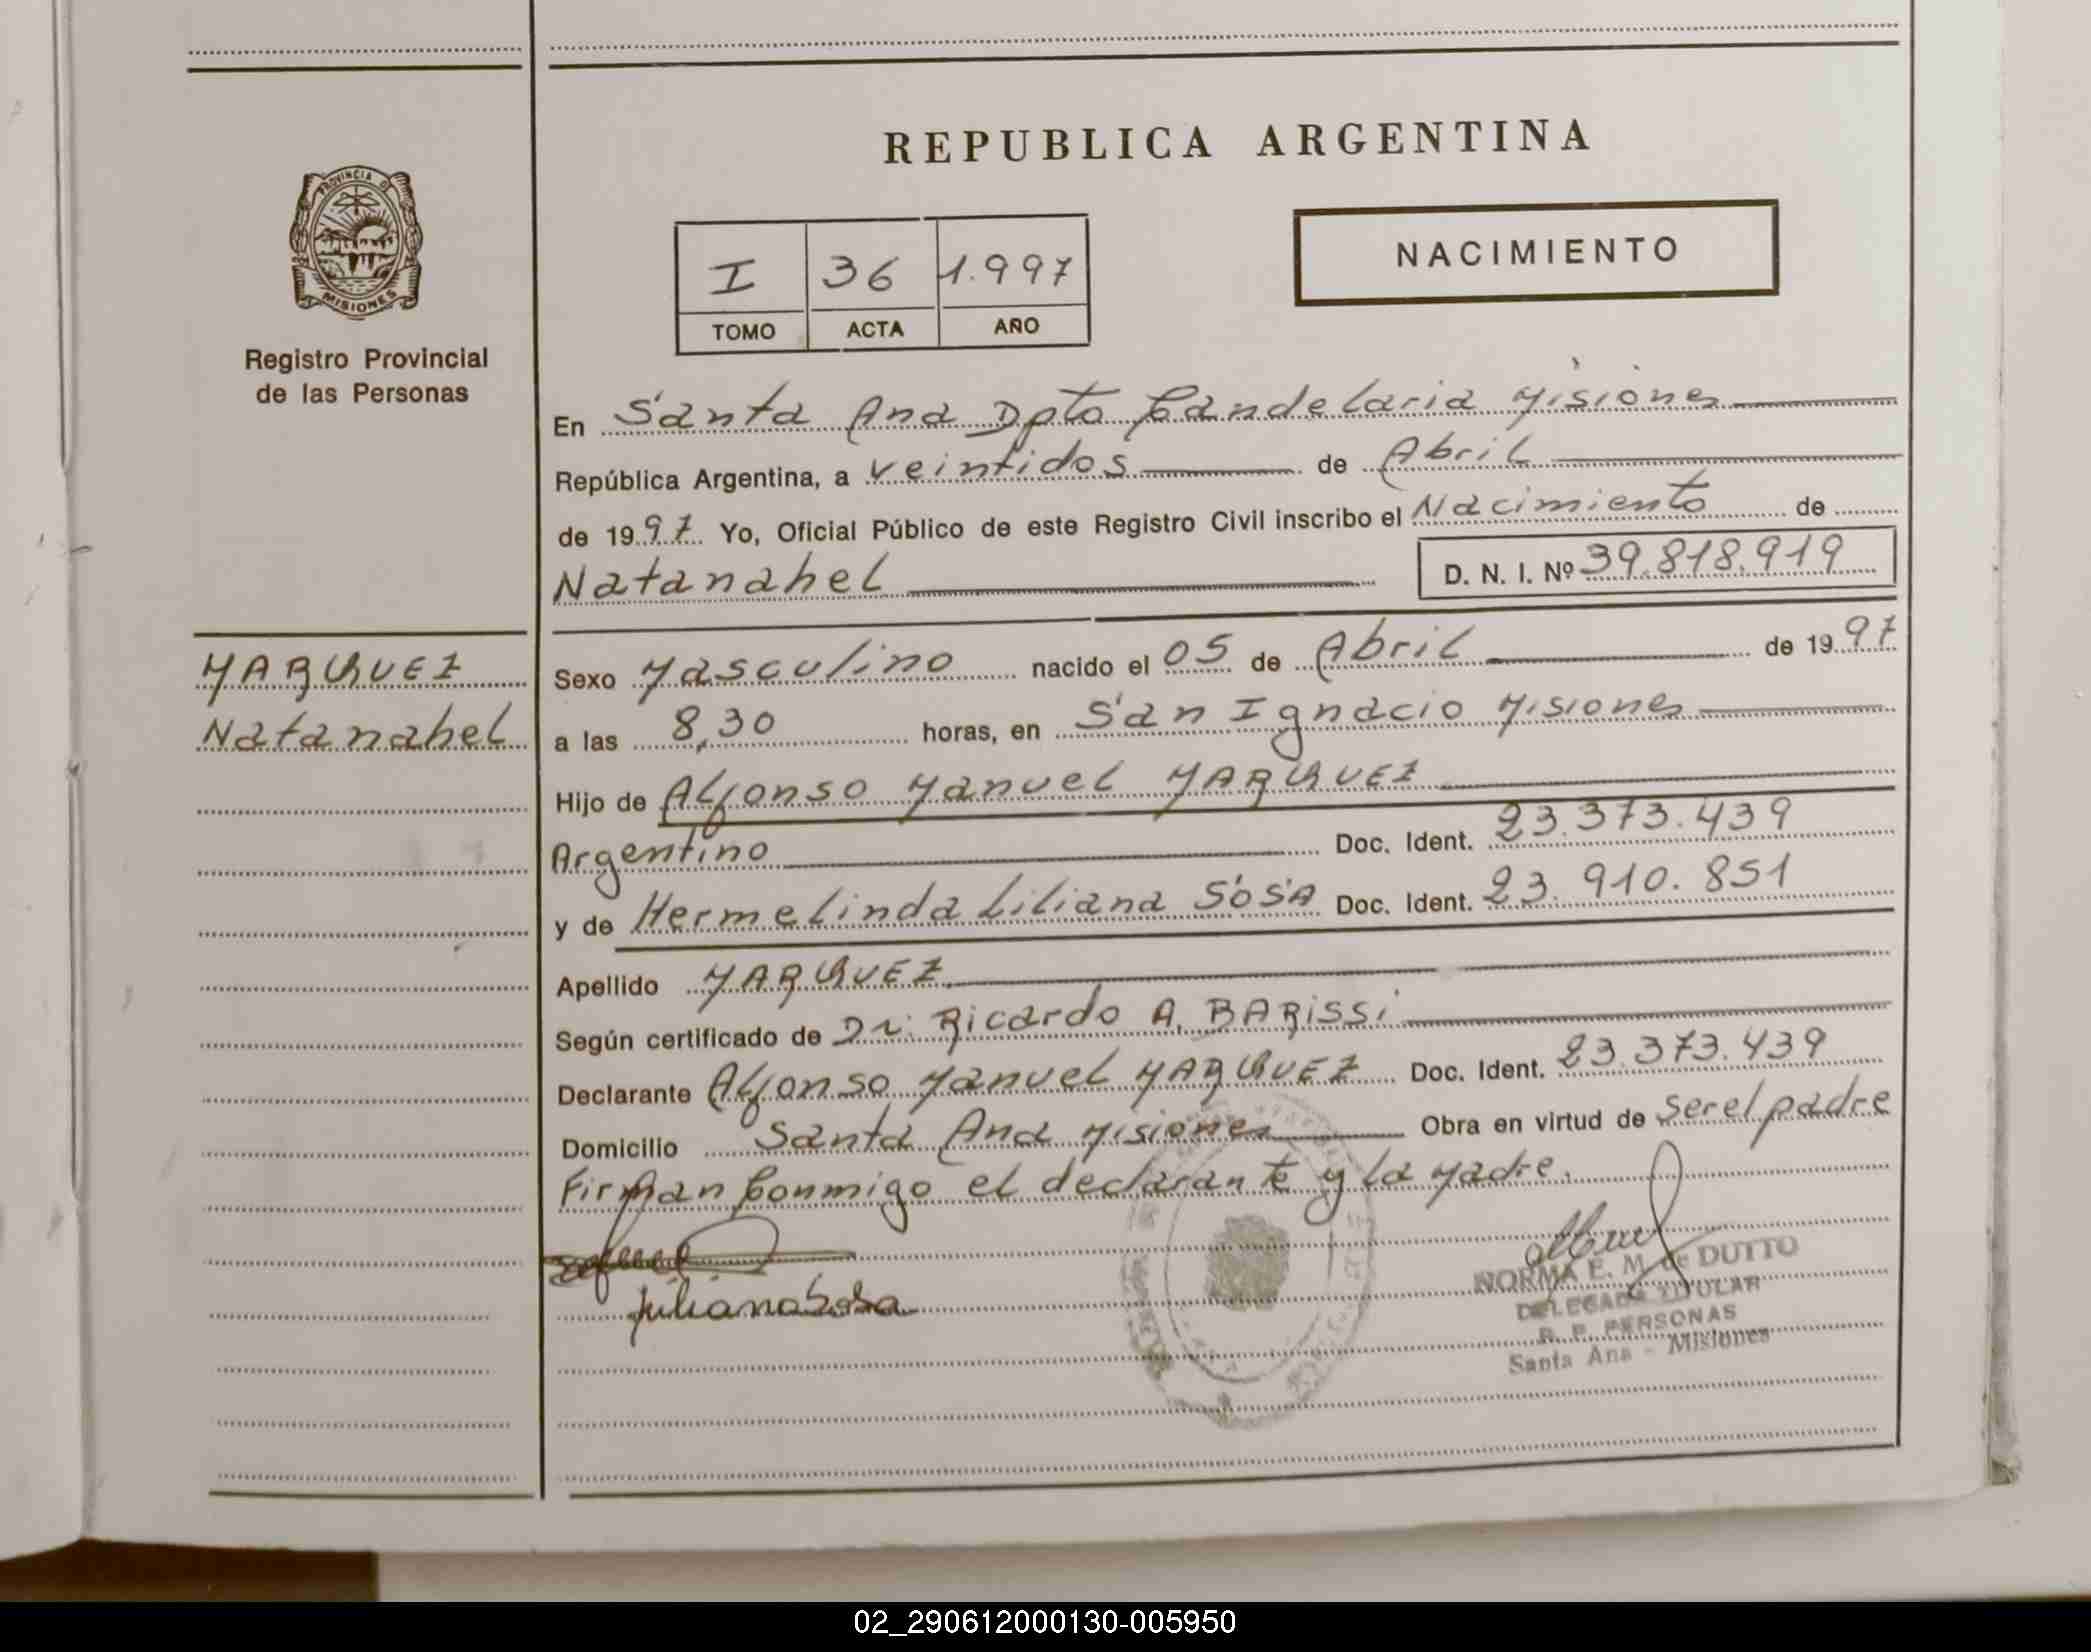 PROVINCIA DE
MISIONES
Registro Provincial
de las Personas
MARQUEZ
Natanahel
REPUBLICA ARGENTINA
I 36 1.997
TOMO ACTA AÑO
NACIMIENTO
En Santa Ana Dpto Candelaria Misiones
República Argentina, a veintidos de Abril
de 1997 Yo, Oficial Público de este Registro Civil inscribo el Nacimiento de
Natanahel D. N. I. Nº 39.818.919
Sexo Masculino nacido el 05 de Abril de 1997
a las 8,30 horas, en San Ignacio Misiones
Hijo de Alfonso Manuel MARQUEZ
Argentino Doc. Ident. 23.373.439
y de Hermelinda Liliana SOSA Doc. Ident. 23.910.851
Apellido MARQUEZ
Según certificado de Dr. Ricardo A. BARISSI
Declarante Alfonso Manuel MARQUEZ Doc. Ident. 23.373.439
Domicilio Santa Ana Misiones Obra en virtud de ser el padre
Firman Conmigo el declarante y la Madre.
Liliana Sosa
NORMA E. M. de DUTTO
DELEGADA TITULAR
R. P. PERSONAS
Santa Ana - Misiones
02_290612000130-005950